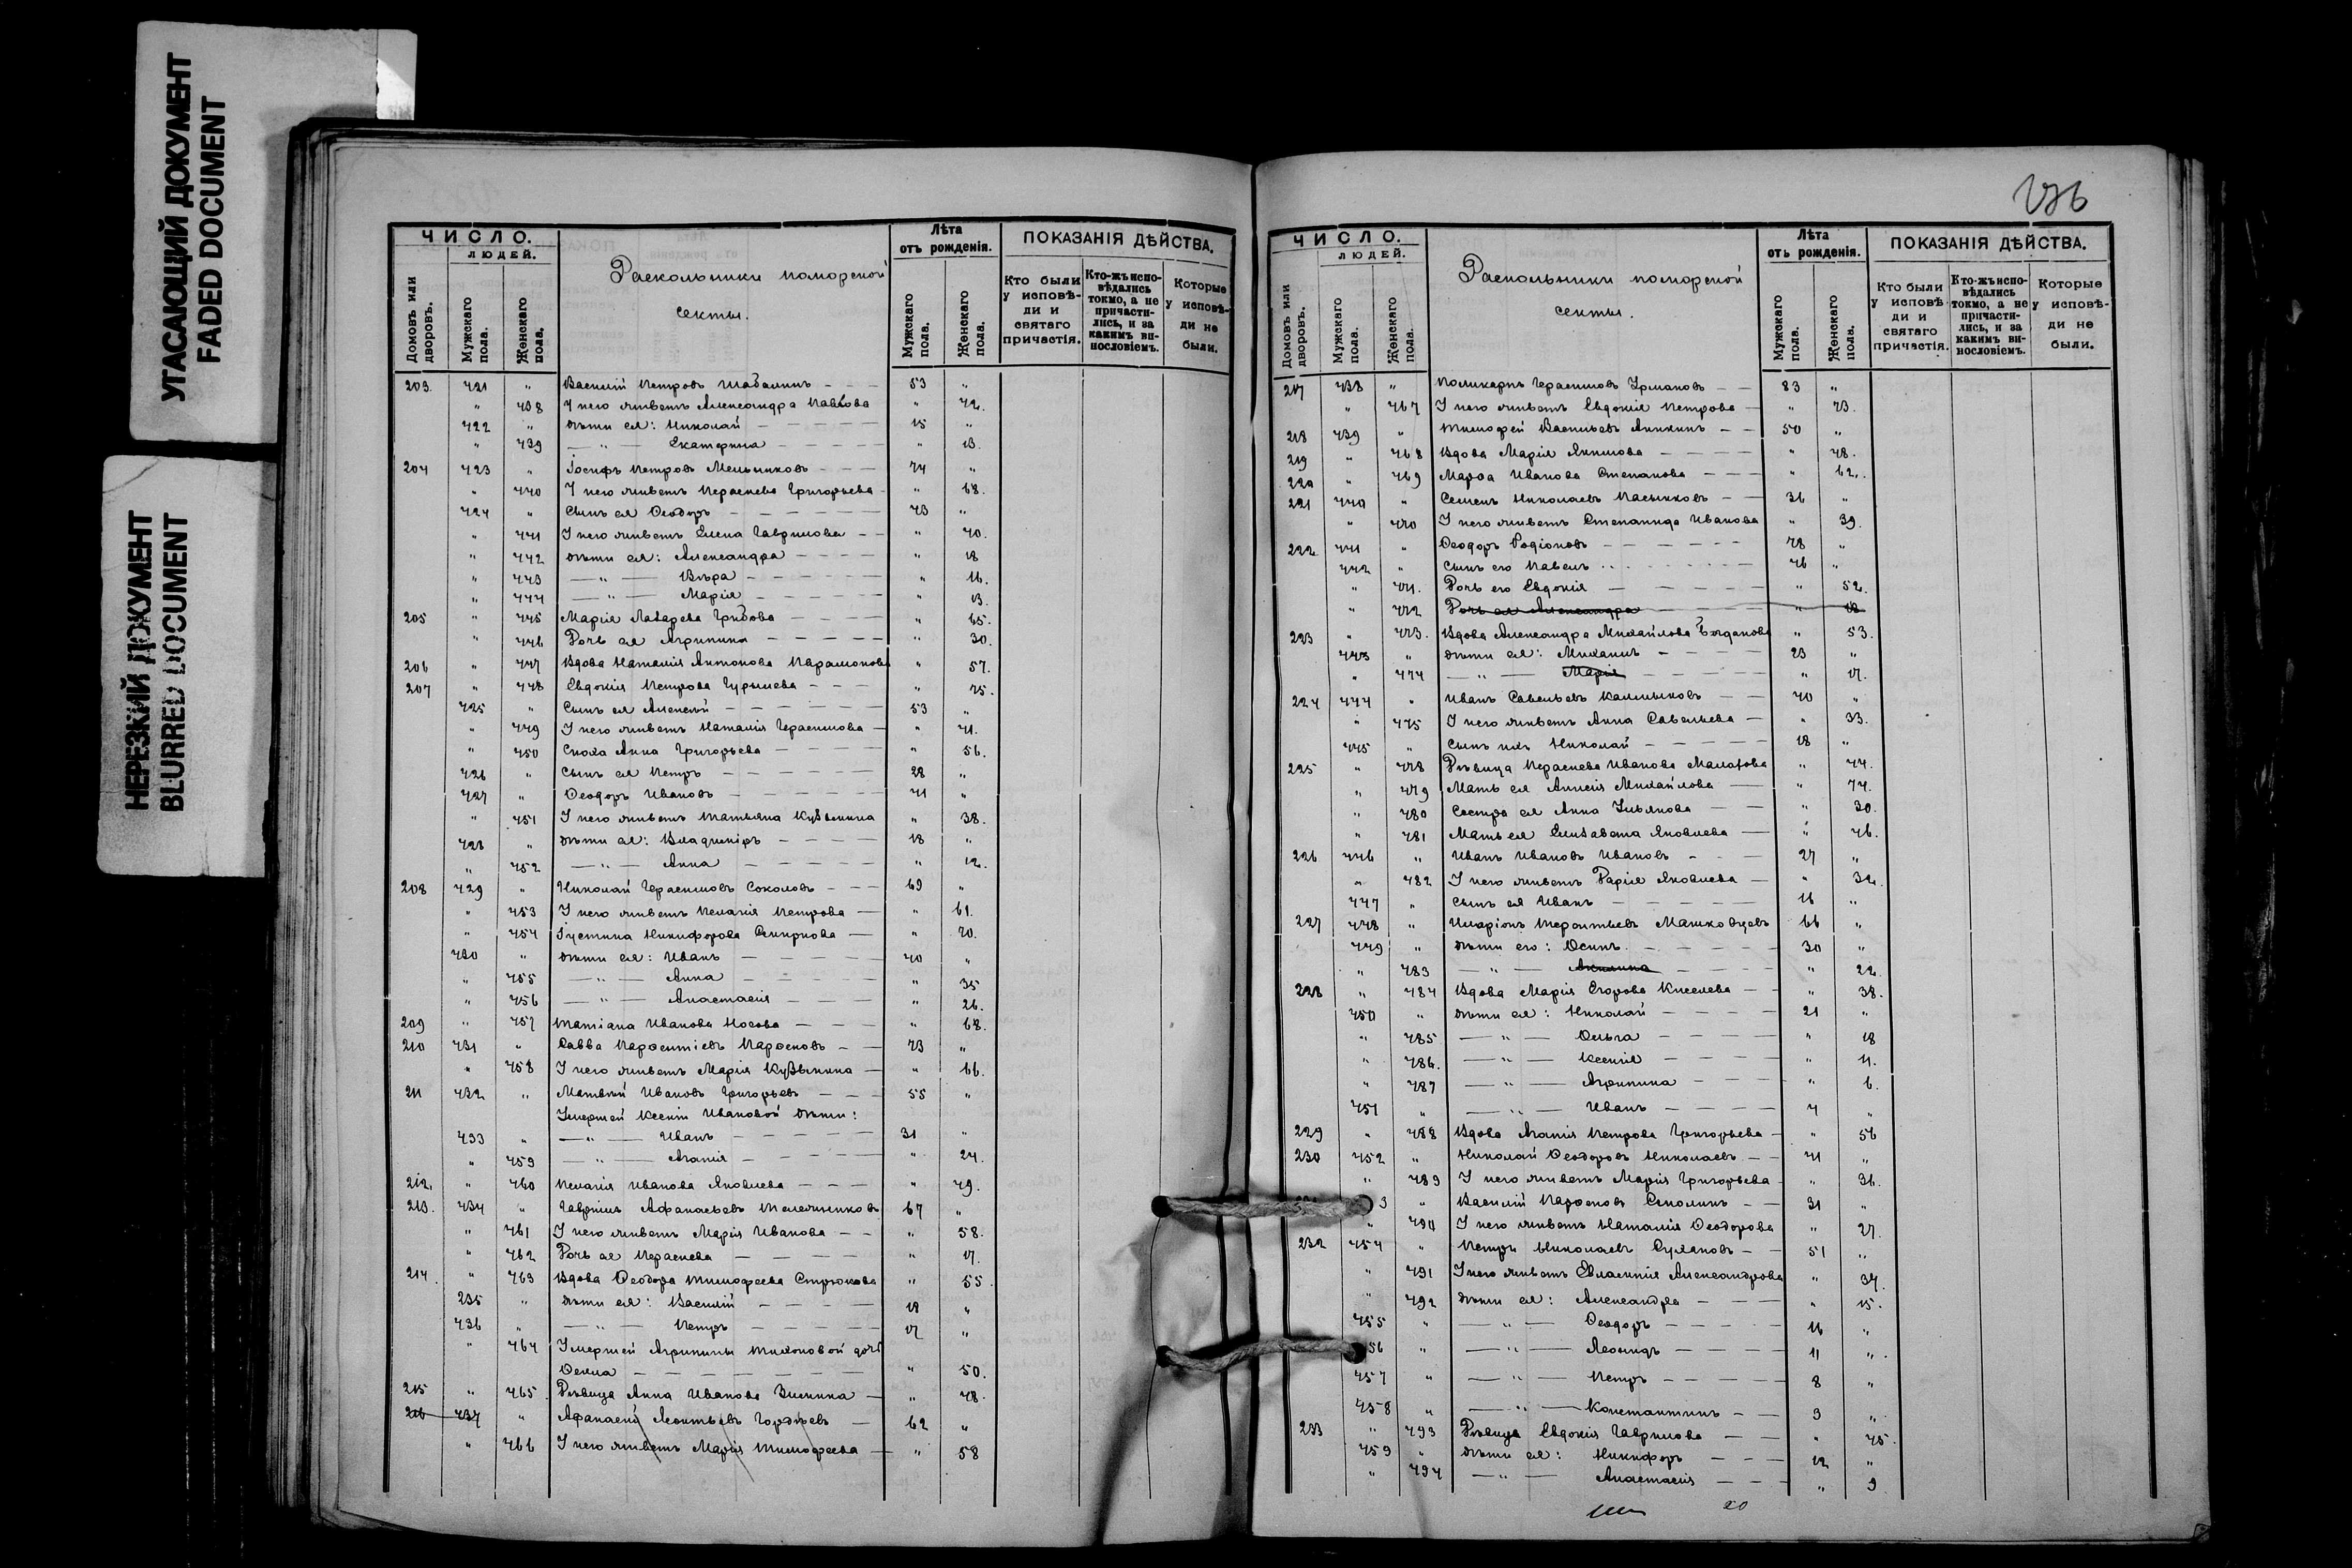 УГАСАЮЩИЙ ДОКУМЕНТ
FADED DOCUMENT
НЕРЕЗКИЙ ДОКУМЕНТ
BLURRED DOCUMENT
ЧИСЛО.
ЛЮДЕЙ.
Домовъ или дворовъ.
Мужскаго пола.
Женскаго пола.
Раскольники поморской
секты.
Лѣта
отъ рожденія.
Мужскаго пола.
Женскаго пола.
ПОКАЗАНІЯ ДѢЙСТВА.
Кто были у исповѣ-ди и святаго причастія.
Кто-жъ испо-вѣдались токмо, а не причасти-лись, и за какимъ ви-нословіемъ.
Которые у исповѣ-ди не были.
203. 421 " Василій Петровъ Шабалинъ - - - 53 "
" 438 У него живетъ Александра Павлова " 42.
422 " Дѣти ея: Николай - - - 15 "
" 439 — " — Екатерина - - - " 13.
204 423 " Іосифъ Петровъ Мельниковъ - - - 74 "
" 440 У него живетъ Параскева Григорьева " 68.
424 " Сынъ ея Ѳеодоръ - - - 43 "
" 441 У него живетъ Елена Гаврилова - - " 40.
" 442 Дѣти ея: Александра - - - " 18
" 443 — " — Вѣра - - - " 16.
" 444 — " — Марія - - - " 13.
205 " 445 Марія Лазарева Грибова - - - " 65.
" 446 Дочь ея Агрипина - - - " 30.
206 " 447 Вдова Наталія Антонова Парамонова " 57.
207 " 448 Евдокія Петрова Гурылева - - - " 75.
425 " Сынъ ея Алексѣй - - - 53 "
" 449 У него живетъ Наталія Герасимова - " 41.
" 450 Сноха Анна Григорьева - - - " 56.
426 " Сынъ ея Петръ - - - 28 "
427 " Ѳеодоръ Ивановъ - - - 41 "
" 451 У него живетъ Татьяна Кузьмина " 38.
428 " Дѣти ея: Владиміръ - - - 18 "
" 452 — " — Анна - - - " 12.
208 429 " Николай Герасимовъ Соколовъ - - - 69 "
" 453 У него живетъ Пелагія Петрова - " 61.
" 454 Іустина Никифорова Смирнова - " 70.
430 " Дѣти ея: Иванъ - - - 40 "
" 455 — " — Анна - - - " 35
" 456 — " — Анастасія - - - " 26.
209 " 457 Татіана Иванова Носова - - - " 68.
210 431 " Савва Парѳентіевъ Парѳеновъ - - 73 "
" 458 У него живетъ Марія Кузьмина - " 66.
211 432 " Матвѣй Ивановъ Григорьевъ - - - 55 "
Умершей Ксеніи Ивановой дѣти:
433 " — " — Иванъ - - - 31 "
" 459 — " — Агапія - - - " 24.
212. " 460 Пелагія Иванова Яковлева - - - " 49.
213. 434 " Гавріилъ Афанасьевъ 67 "
" 461 У него живетъ Марія Иванова - - " 58.
" 462 Дочь ея Параскева - - - " 17.
214. " 463 Вдова Ѳеодора Тимофеева Стрюкова " 55.
235 " Дѣти ея: Василій - - - 18 "
436 " — " — Петръ - - - 17 "
" 464 Умершей Агрипины Тихоновой дочь
Ѳекла - - - " 50.
215 " 465. Дѣвица Анна Иванова - " 48.
216 437 " Афанасій Леонтьевъ Гордѣевъ - 62 "
" 466 У него живетъ Марія Тимофеева - " 58
176
ЧИСЛО.
ЛЮДЕЙ.
Домовъ или дворовъ.
Мужскаго пола.
Женскаго пола.
Раскольники поморской
секты.
Лѣта
отъ рожденія.
Мужскаго пола.
Женскаго пола.
ПОКАЗАНІЯ ДѢЙСТВА.
Кто были у исповѣ-ди и святаго причастія.
Кто-жъ испо-вѣдались токмо, а не причасти-лись, и за какимъ ви-нословіемъ.
Которые у исповѣ-ди не были.
217 438 " Поликарпъ Герасимовъ Ермаковъ - - 83 "
" 467 У него живетъ Евдокія Петрова - " 73.
218 439 " Тимофей Васильевъ Аникинъ - - 50 "
219 " 468 Вдова Марія Якимова - - - " 78.
220 " 469 Марѳа Иванова Степанова - - - " 62.
221 440 " Семенъ Николаевъ Пасынковъ - - 36 "
" 470 У него живетъ Степанида Иванова " 39.
222 441 " Ѳеодоръ Родіоновъ - - - 78 "
442 " Сынъ его Павелъ - - - 46 "
" 471. Дочь его Евдокія - - - " 52.
" 472 Дочь ея Александра " 18
223 " 473. Вдова Александра Михайлова Богданова " 53.
443 " Дѣти ея: Михаилъ - - - 23 "
" 474 — " — Марія - - - " 17.
224 444 " Иванъ Савельевъ Калмыковъ - - 40 "
" 475 У него живетъ Анна Савельева - " 33.
445 " Сынъ ихъ Николай - - - 18 "
225 " 478 Дѣвица Параскева Иванова " 44.
" 479 Мать ея Анисія Михайлова — " 74.
" 480 Сестра ея Анна - - " 30.
" 481 Мать ея Елизавета Яковлева — " 46.
226 446 " Иванъ Ивановъ Ивановъ - - - 27 "
" 482 У него живетъ Дарія Яковлева - " 32.
447 " Сынъ ея Иванъ - - - 16 "
227 448 " Иларіонъ Терентьевъ Машковцевъ 66 "
449 " Дѣти его: Осипъ. - - - 30 "
" 483 — " — Акилина - - - " 22.
228 " 484 Вдова Марія Егорова Киселева - - " 38.
450 " Дѣти ея: Николай - - - 21 "
" 485 — " — Ольга - - - " 18
" 486. — " — Ксенія - - - " 11.
" 487 — " — Агрипина - - - " 6.
451 " — " — Иванъ - - - 4 "
229 " 488 Вдова Агапія Петрова Григорьева - " 56
230 452 " Николай Ѳеодоровъ Николаевъ - - 41 "
" 489 У него живетъ Марія Григорьева - " 36.
3 " Василій Парѳеновъ - - 31 "
" 490 У него живетъ Наталія Ѳеодорова " 27.
232 454 " Петръ Николаевъ Сухановъ - - 51 "
" 491 У него живетъ Евлампія Александрова " 34.
" 492 Дѣти ея: Александра - - - " 15.
455 " — " — Ѳеодоръ - - - 16 "
56 " — " — Леонидъ - - - 11 "
457 " — " — Петръ - - - 8 "
458 " — " — Константинъ - - 3 "
233 " 493 Дѣвица Евдокія Гаврилова - - " 45.
459 " Дѣти ея: Никифоръ - - - 12 "
" 494 — " — Анастасія - - - " 9